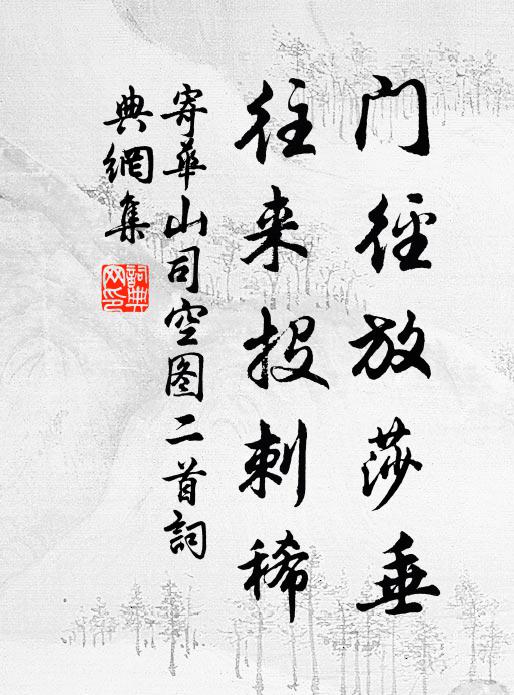 门径放莎垂
往来投刺稀
寄華山司空图二首詞
典網集
詞典
网印